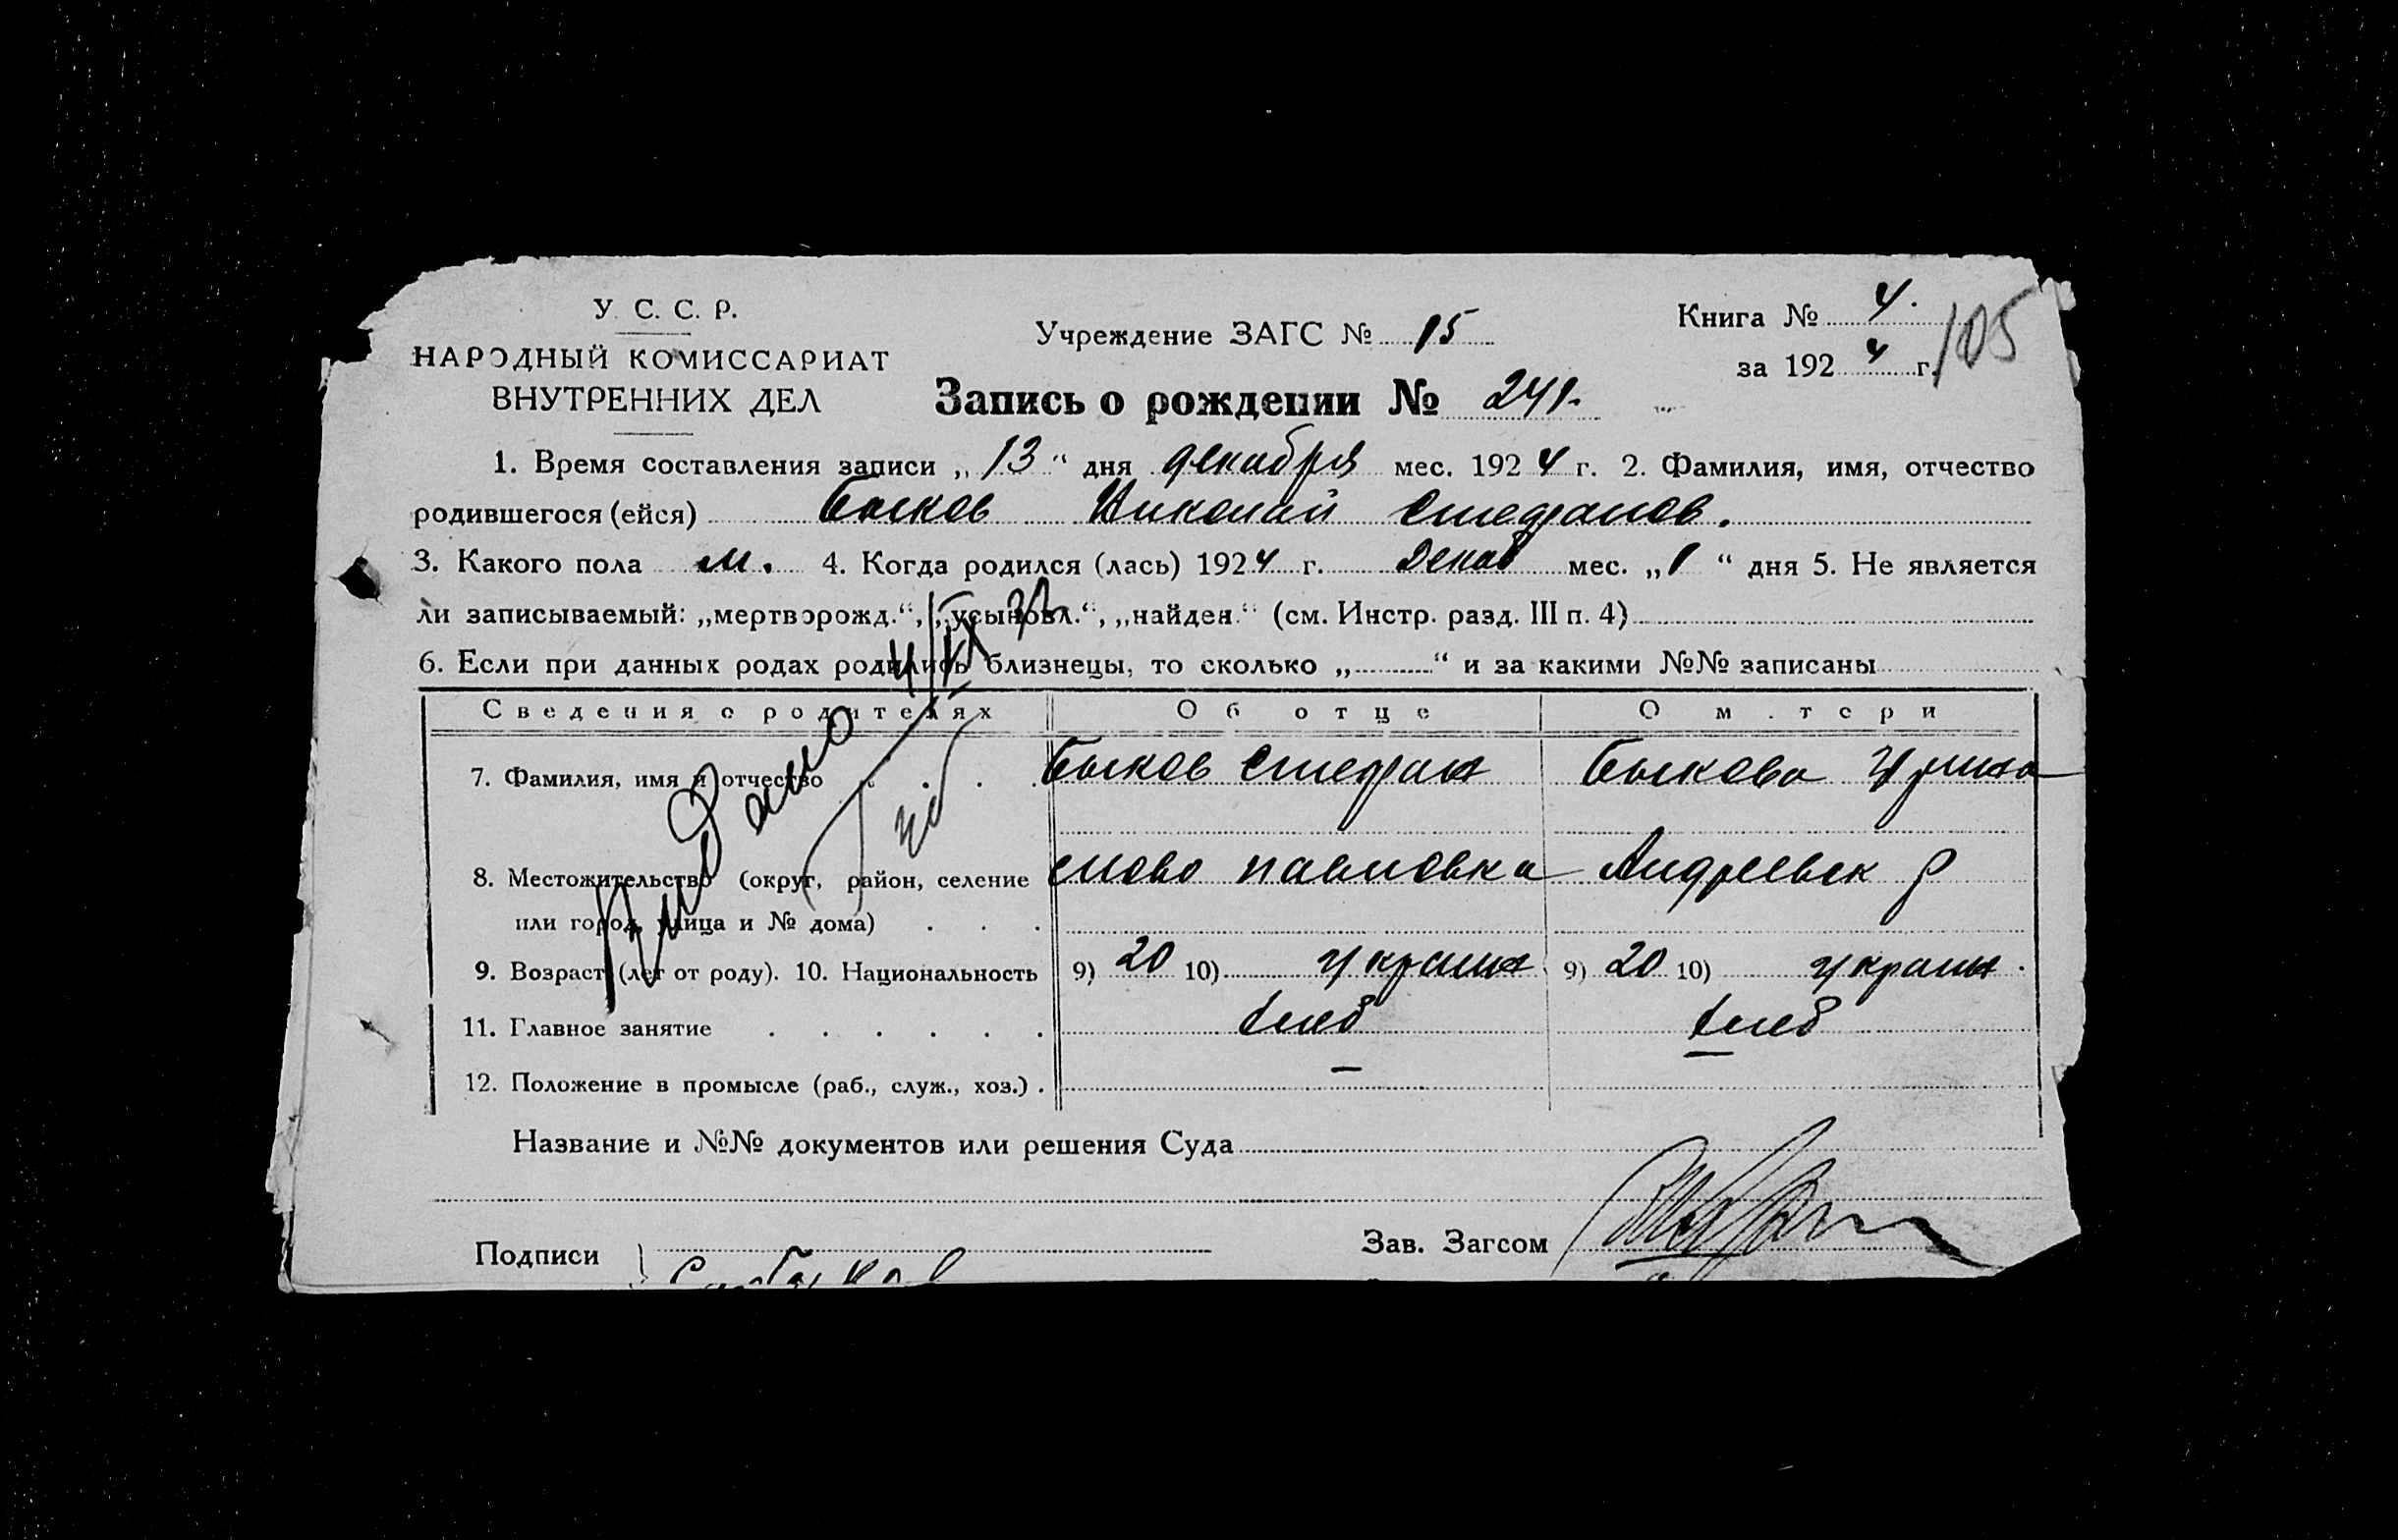 У. С. С. Р.
НАРОДНЫЙ КОМИССАРИАТ
ВНУТРЕННИХ ДЕЛ
Учреждение ЗАГС № 15
Книга № 4.
за 1924 г.
105
Запись о рождении № 241.
1. Время составления записи „13“ дня декабря мес. 1924 г. 2. Фамилия, имя, отчество
родившегося (ейся) Быков Николай Стефанов.
3. Какого пола м. 4. Когда родился (лась) 1924 г. Декаб мес. „1“ дня 5. Не является
ли записываемый: „мертворожд.“, „усыновл.“, „найден.“ (см. Инстр. разд. III п. 4)
6. Если при данных родах родились близнецы, то сколько „ “ и за какими №№ записаны
Сведения о родителях Об отце О м.тери
7. Фамилия, имя и отчество Быков Стефан Быкова Урина
8. Местожительство (округ, район, селение павловка Андреевск р
или город, улица и № дома)
9. Возраст (лет от роду). 10. Национальность 9) 20 10) украин 9) 20 10) украин.
11. Главное занятие хлеб хлеб
12. Положение в промысле (раб., служ., хоз.) . — —
Название и №№ документов или решения Суда
Подписи
Зав. Загсом